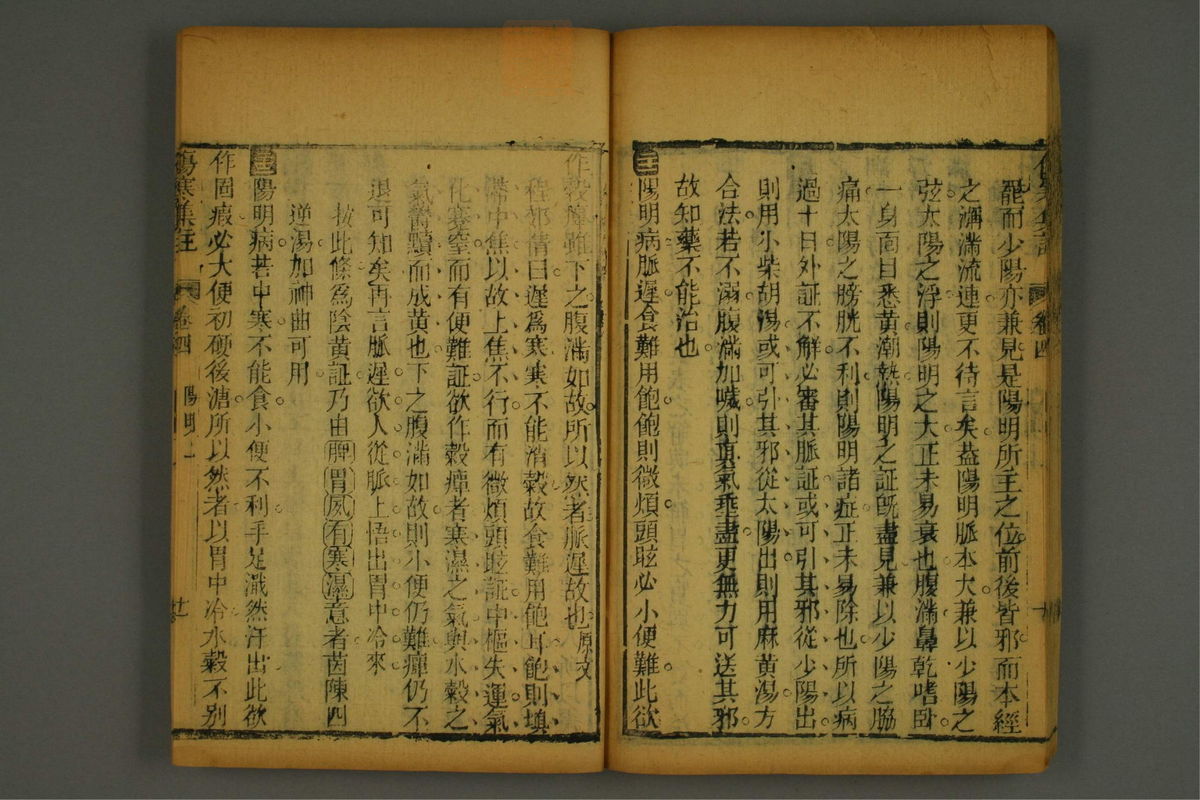 罷而少陽亦兼見是陽明所主之位前後皆邪而本經
之瀰滿流連更不待言矣蓋陽明脈本大兼以少陽之
弦太陽之浮則陽明之大正未易衰也腹滿鼻乾嗜臥
一身面目悉黃潮熱陽明之証旣盡見兼以少陽之脇
痛太陽之膀胱不利則陽明諸症正未易除也所以病
過十日外証不解必審其脈証或可引其邪從少陽出
則用小柴胡湯或可引其邪從太陽出則用麻黃湯方
合法若不溺腹滿加噦則眞氣垂盡更無力可送其邪
故知藥不能治也
陽明病脈遲食難用飽飽則微煩頭眩必小便難此欲
作穀癉雖下之腹滿如故所以然者脈遲故也原文
程郊倩曰遲爲寒寒不能消穀故食難用飽耳飽則填
滯中焦以故上焦不行而有微煩頭眩証中樞失運氣
化窒而有便難証欲作穀癉者寒濕之氣與水穀之
氣鬱黷而成黃也下之腹滿如故則小便仍難癉仍不
退可知矣再言脈遲欲人從脈上悟出胃中冷來
按此條爲陰黃証乃由脾胃夙有寒濕意者茵陳四
逆湯加神曲可用
陽明病若中寒不能食小便不利手足濈然汗出此欲
作固瘕必大便初硬後溏所以然者以胃中冷水穀不别
傷寒集註 卷四 陽明一